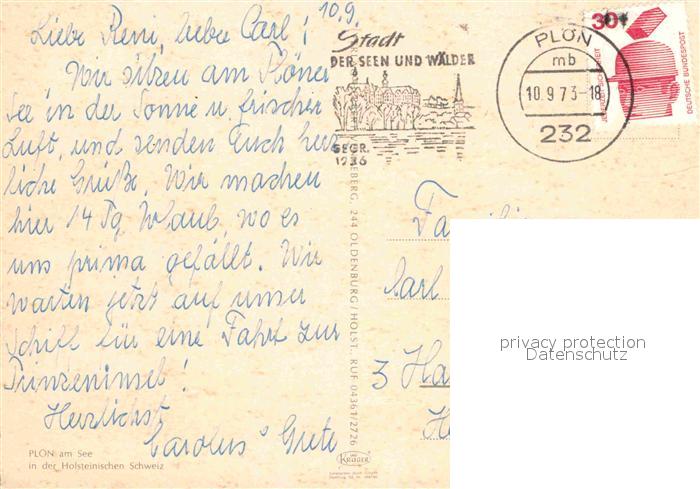 10.9.
Liebe Reni, lieber Carl!
Wir sitzen am Plöner
See in der Sonne u. frischer
Luft, und senden Euch herz-
liche Grüße. Wir machen
hier 14 Tg. Urlaub, wo es
uns prima gefällt. Wir
warten jetzt auf unser
Schiff für eine Fahrt zur
Prinzeninsel!
Herzlichst
Carolus u. Grete
PLÖN am See
in der Holsteinischen Schweiz
Stadt
DER SEEN UND WÄLDER
GEGR.
1236
PLÖN
mb
10.9.73-18
232
30
JEDERZEIT SICHERHEIT
DEUTSCHE BUNDESPOST
244 OLDENBURG/HOLST. RUF 04361/2726
KRÜGER
Carl
3 Ha
privacy protection
Datenschutz